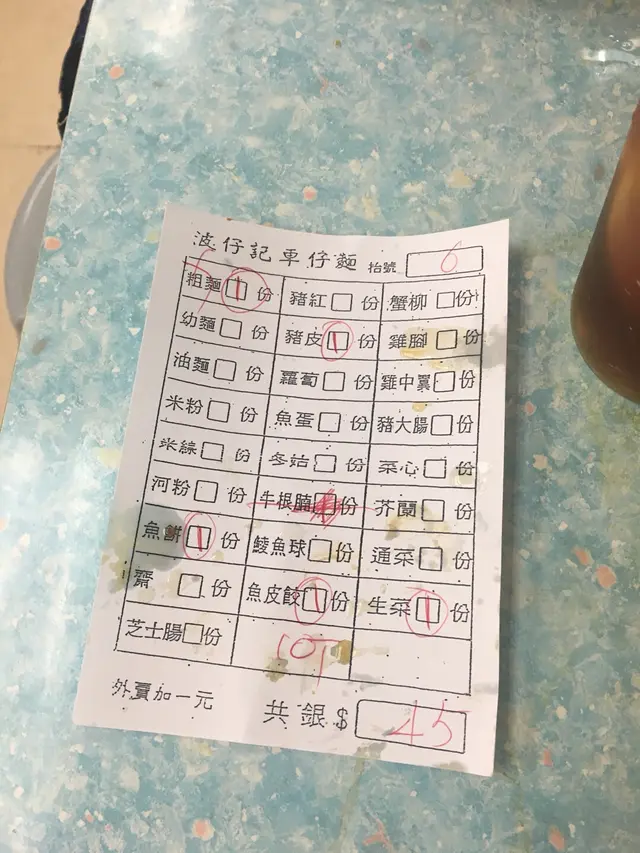 波仔記車仔麵 枱號 6
粗麵 1 份 豬紅 份 蟹柳 份
幼麵 份 豬皮 1 份 雞腳 份
油麵 份 蘿蔔 份 雞中翼 份
米粉 份 魚蛋 份 豬大腸 份
米線 份 冬菇 份 菜心 份
河粉 份 牛根腩 份 芥蘭 份
魚餅 1 份 鯪魚球 份 通菜 份
齋 份 魚皮餃 1 份 生菜 1 份
芝士腸 份 10T
外賣加一元 共銀$ 45